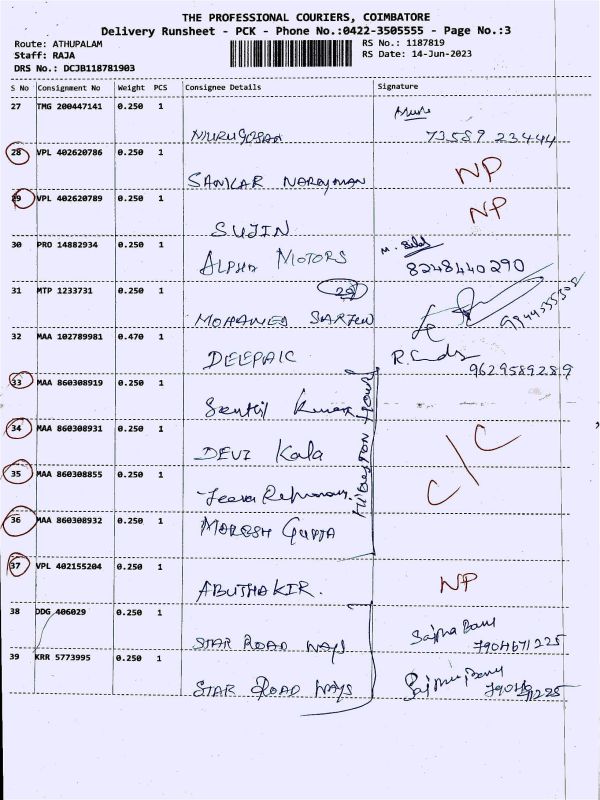 THE PROFESSIONAL COURIERS, COIMBATORE
Delivery Runsheet - PCK - Phone No.:0422-3505555 - Page No.:3
Route: ATHUPALAM
RS No.: 1187819
Staff: RAJA
RS Date: 14-Jun-2023
DRS No.: DCJB118781903
S No Consignment No Weight PCS Consignee Details Signature
27 TMG 200447141 0.250 1
MURUGESAN 73589 23444
28 VPL 402620786 0.250 1
SANKAR NARAYANAN NP
29 VPL 402620789 0.250 1 NP
SUJIN
30 PRO 14882934 0.250 1
ALPHA MOTORS 8248440290
31 MTP 1233731 0.250 1
MOHAMED
32 MAA 102789981 0.470 1
DEEPAK 9629589289
33 MAA 860308919 0.250 1
Senthil Kumar
34 MAA 860308931 0.250 1
DEVI Kala C/C
35 MAA 860308855 0.250 1
Jeeva
36 MAA 860308932 0.250 1
GUPTA
37 VPL 402155204 0.250 1
ABUTHAKIR. NP
38 DDG 406029 0.250 1
STAR ROAD WAYS 7904671225
39 KRR 5773995 0.250 1
STAR ROAD WAYS